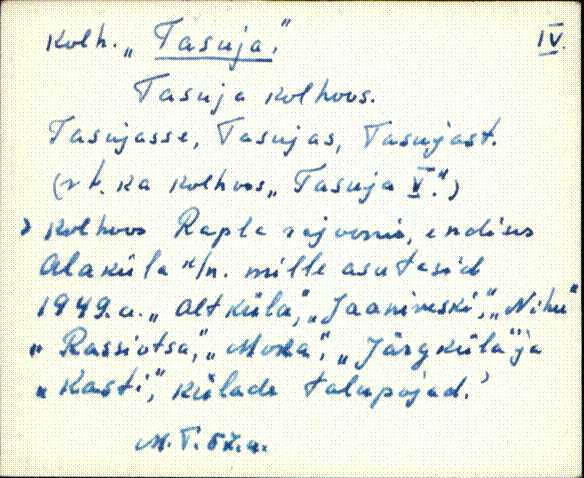 Kolh. „Tasuja." IV.
Tasuja kolhoos.
Tasujasse, Tasujas, Tasujast.
(vt. ka kolhoos „Tasuja V.")
› Kolhoos Rapla rajoonis, endises
Alaküla k/n. mille asutasid
1949.a. „Altküla", „Jaaniveski", „Nihu"
„Rassiotsa", „Moka", „Järgküla" ja
„Kasti", külade talupojad.›
M.T. 57.a.